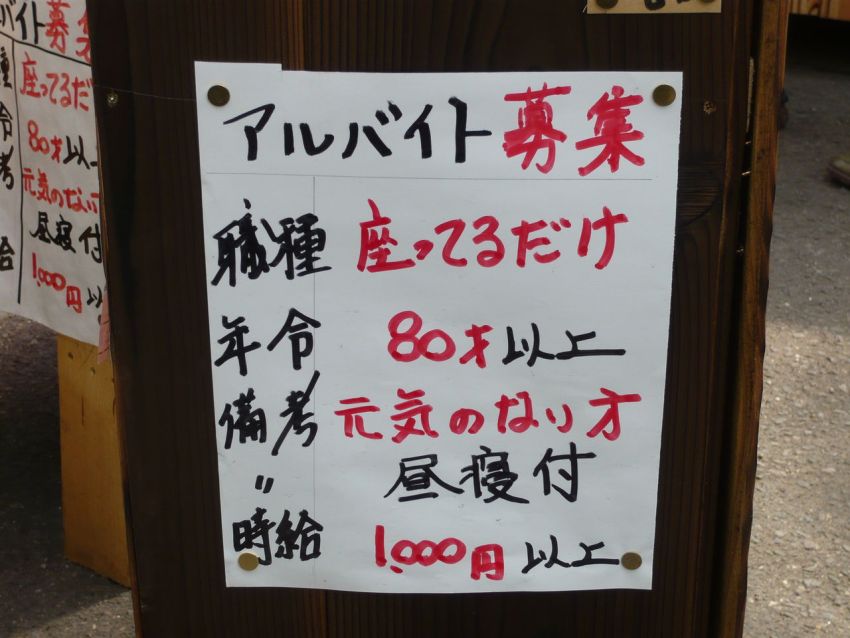 アルバイト募集
職種 座ってるだけ
年令 80才以上
備考 元気のない方
〃 昼寝付
時給 1,000円以上
バイト募集
種 座ってるだ
令 80才以上
考 元気のない方
昼寝付
給 1,000円以